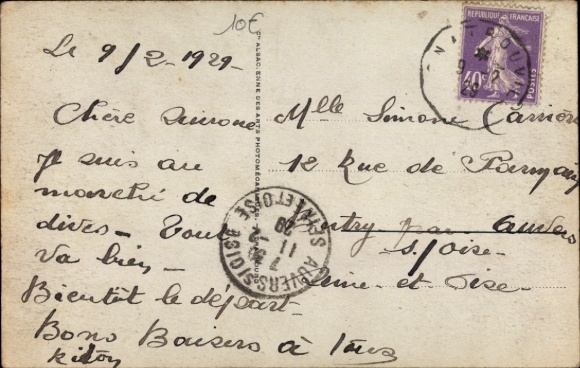 10€
Le 9/2-1929-
Chère Simone
Je suis au
marché de
dives - Tout
va bien -
Bientôt le départ-
Bons Baisers à tous
Mlle Simone Carrière
12 Rue de
par Auvers
s/oise -
Seine-et-Oise-
REPUBLIQUE FRANÇAISE
40c
POSTES
9 2
29
AUVERS-S-OISE
SEINE ET OISE
11 2
29